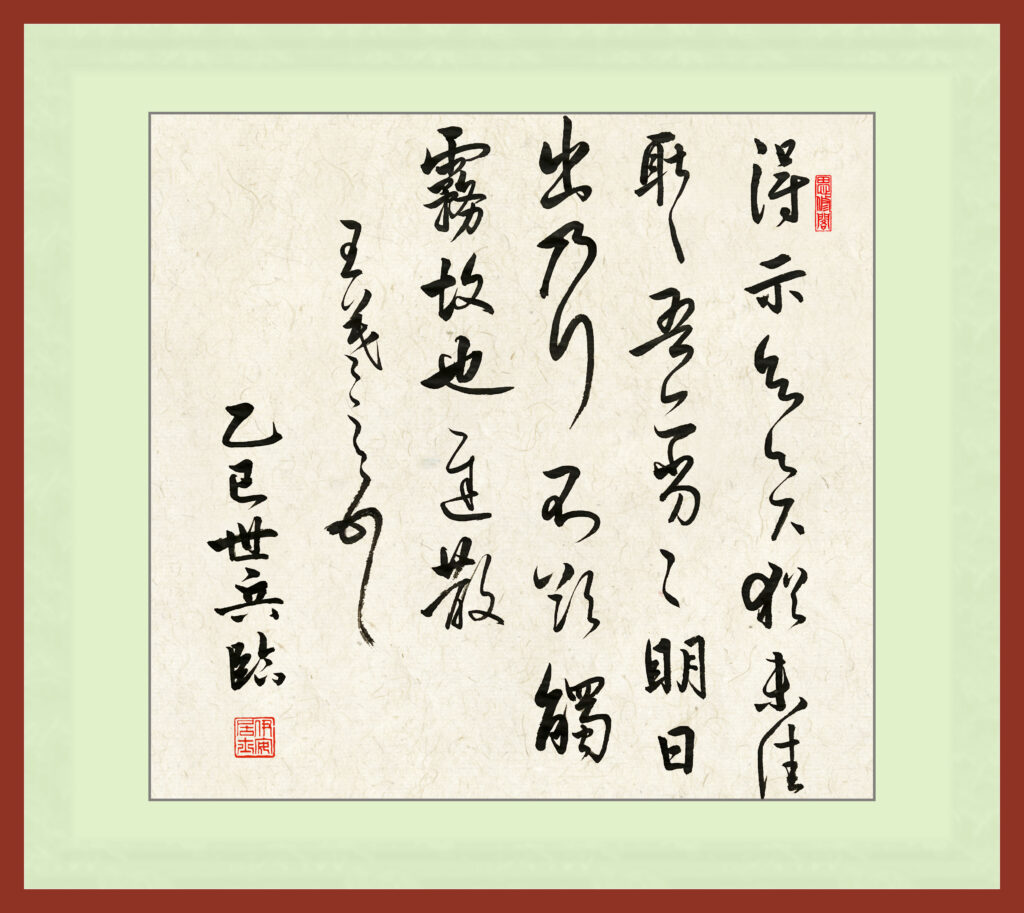 得示知足下猶未佳
耿〻吾亦劣〻明日
出乃行不欲觸
霧故也遲散
王羲之頓首
乙巳世兵臨
伊安居士